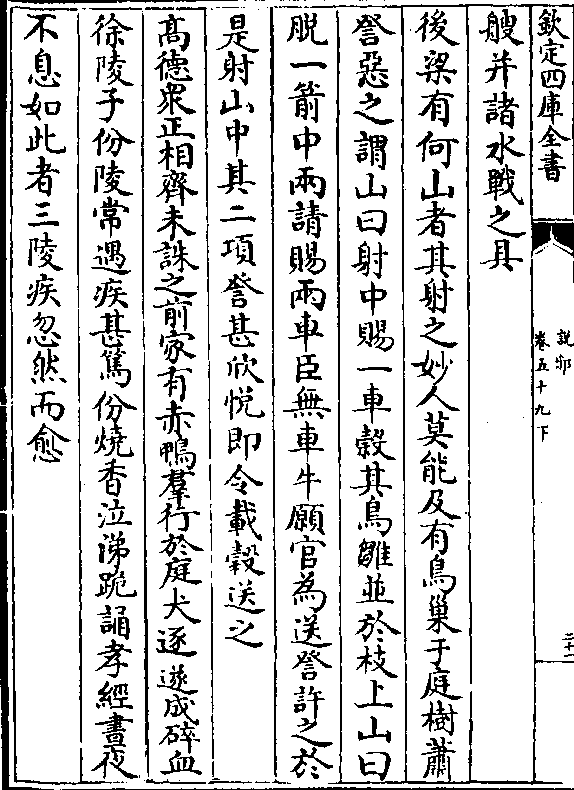 欽定四庫全書
說郛
卷五十九下
二十一
艘并諸水戰之具
後梁有何山者其射之妙人莫能及有鳥巢于庭樹蕭
詧惡之謂山曰射中賜一車穀其鳥雛並於枝上山曰
脱一箭中兩請賜兩車臣無車牛願官為送詧許之於
是射山中其二項詧甚欣悅即令載穀送之
髙德衆正相齊未誅之前家有赤鴨羣行於庭犬逐遂成碎血
徐陵子份陵常遇疾甚篤份燒香泣涕跪誦孝經晝夜
不息如此者三陵疾忽然而愈